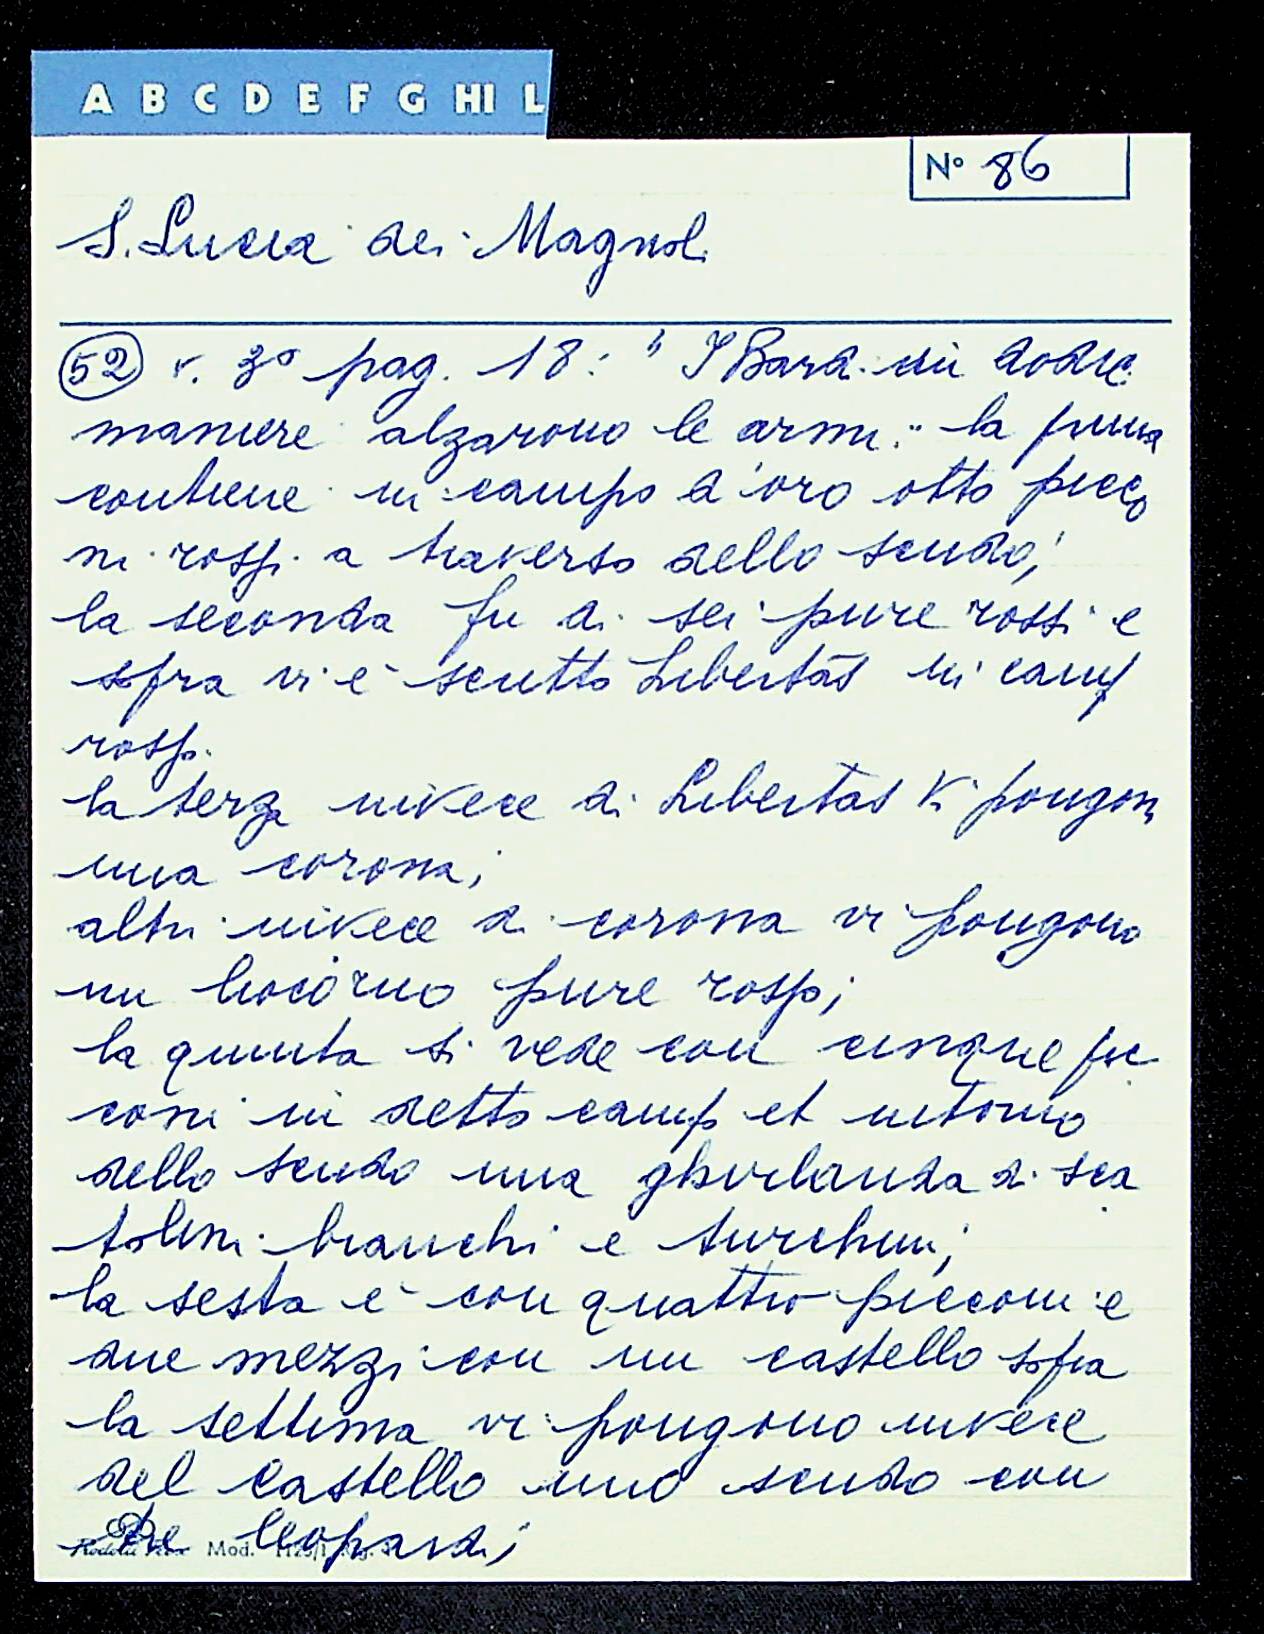 A B C D E F G HI L
N° 86
S. Lucia dei Magnoli
52 v. 3° pag. 18: " I Bardi in dodici
maniere alzarono le armi: la prima
contiene in campo d'oro otto picco
ni rossi a traverso dello scudo;
la seconda fu di sei pure rossi e
sopra vi è scritto Libertas in campo
rosso.
la terza invece di Libertas vi pongono
una corona;
altri invece di corona vi pongono
un liocorno pure rosso;
la quinta si vede con cinque pic
coni in detto campo et intorno
dello scudo una ghirlanda di sca
tolini bianchi e turchini;
la sesta è con quattro picconi e
due mezzi con un castello sopra
la settima vi pongono invece
del castello uno scudo con
tre leopardi;
Mod.